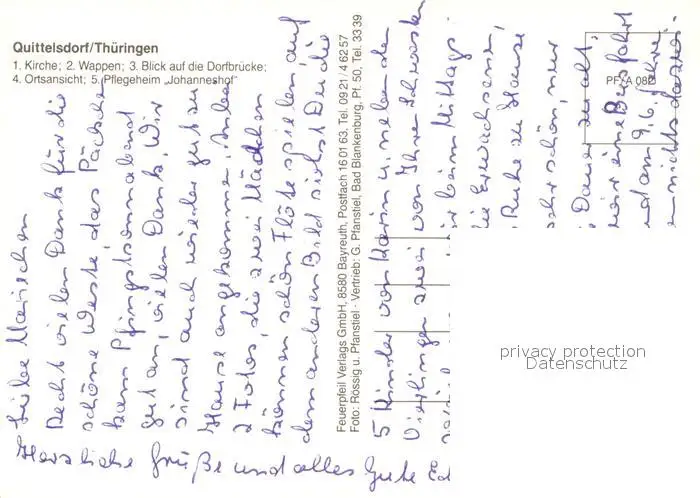 Quittelsdorf/Thüringen
1. Kirche; 2. Wappen; 3. Blick auf die Dorfbrücke;
4. Ortsansicht; 5. Pflegeheim „Johanneshof"
PF A 082
Recht vielen Dank für die
schöne Weste, das Päckchen
kam Pfingstsonnabend
gut an, vielen Dank. Wir
sind auch wieder gut zu
Hause angekommen. Anbei
2 Fotos, die zwei Mädchen
können schön Flöte spielen, auf
dem anderen Bild siehst Du die
Feuerpfeil Verlags GmbH, 8580 Bayreuth, Postfach 16 01 63, Tel. 09 21 / 4 62 57
Foto: Rössig u. Pfanstiel · Vertrieb: G. Pfanstiel, Bad Blankenburg, Pf. 50, Tel. 33 39
5 Kinder von Karin u. neben den
Vierlingen zwei von Ihrer Schwester
beim Mittags-
die Erwachsenen,
Ruhe zu Hause
sehr schön, nur
Dauer zu alt,
war eine Busfahrt
und am 9.6. fahre
nichts
Herzliche Grüße und alles Gute
privacy protection
Datenschutz